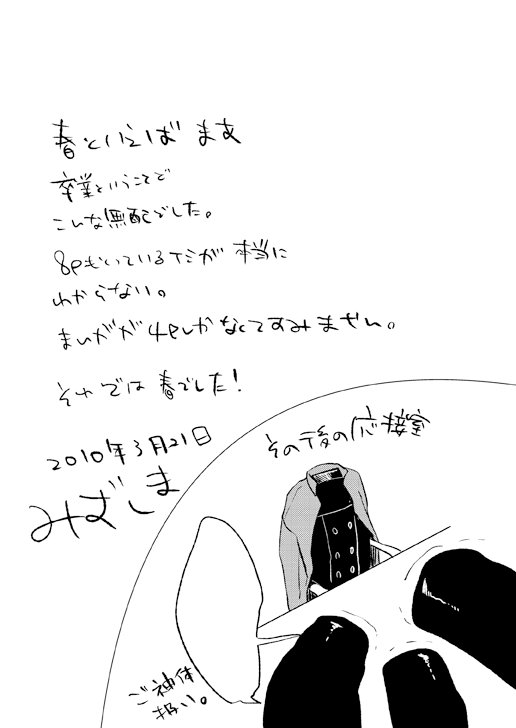 春といえば まあ
卒業ということで
こんな無配でした。
8Pもいているイミが 本当に
わからない。
まんがが4Pしかなくてすみません。
それでは 春でした！
2010年3月21日
みずしま
その後の応接室
ご神体
扱い。